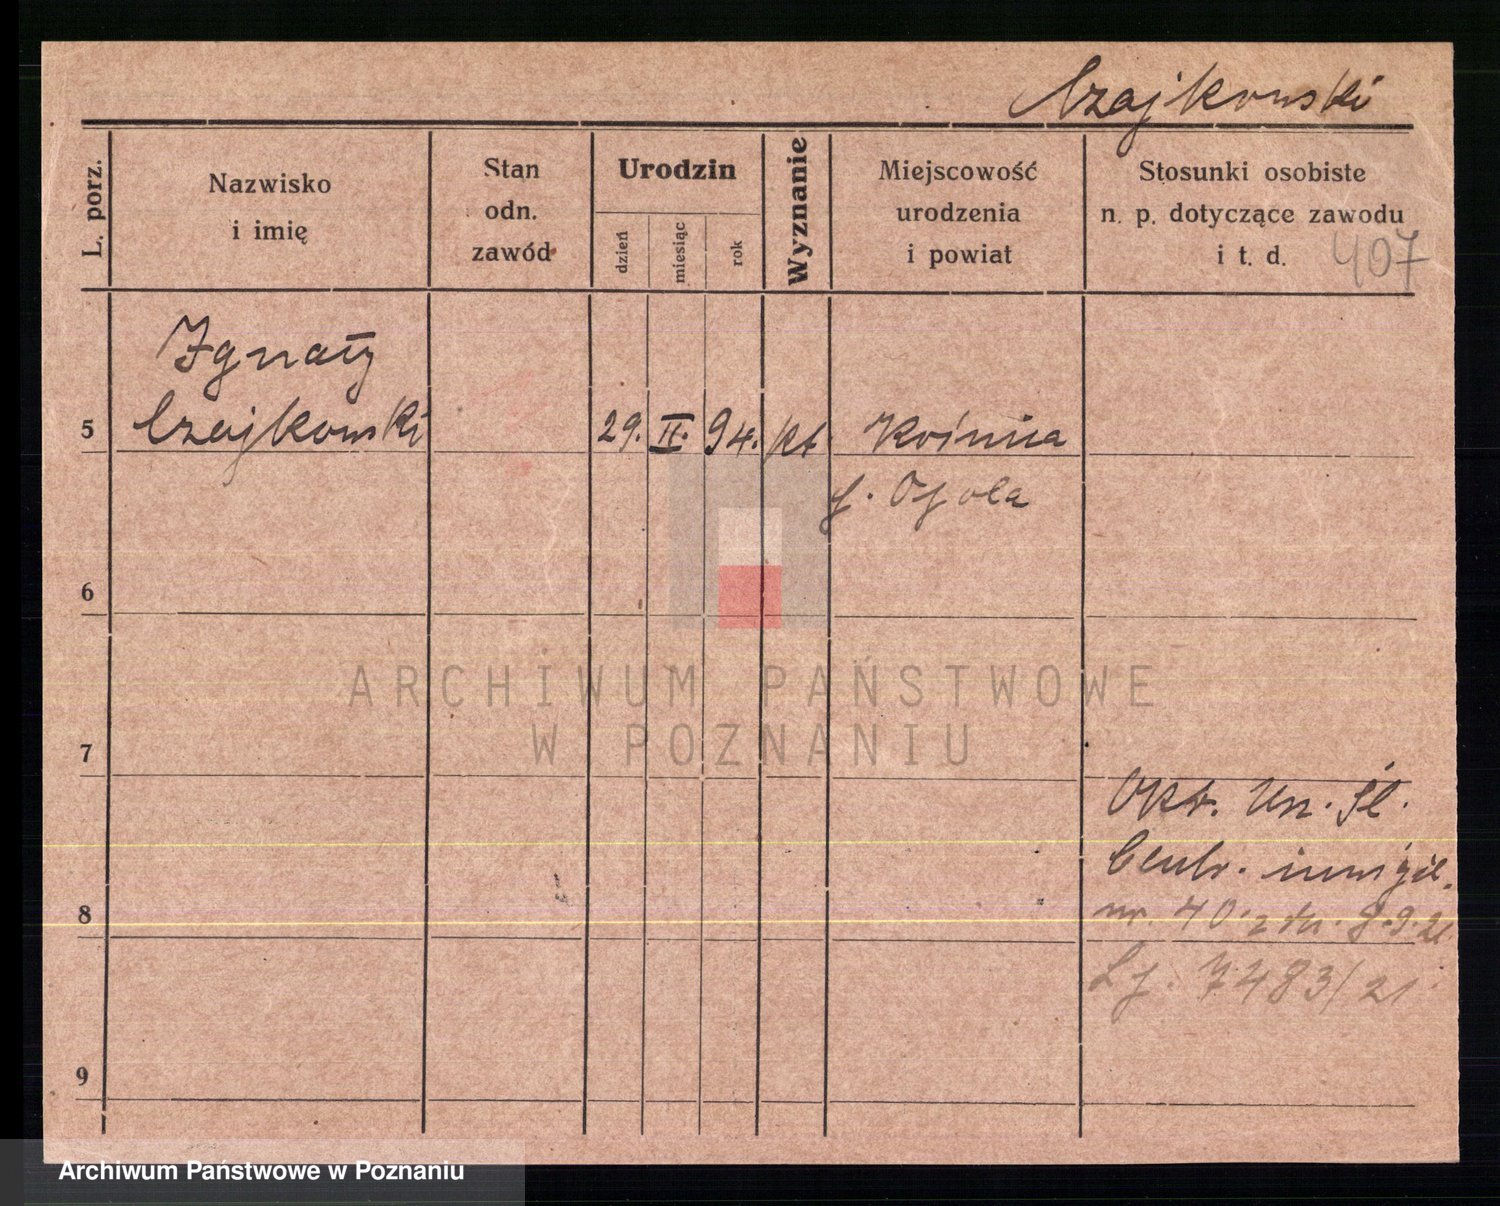 Czajkowski
L. porz.
Nazwisko
i imię
Stan
odn.
zawód
Urodzin
dzień
miesiąc
rok
Wyznanie
Miejscowość
urodzenia
i powiat
Stosunki osobiste
n. p. dotyczące zawodu
i t. d.
407
Ignacy
5 Czajkowski 29. II. 94. kt.
p. Opola
6
7
Okr. Un. Śl.
Centr. inwigil.
8
nr. 40. z dn. 8.9.21.
Lp. 7483/21
9
ARCHIWUM PAŃSTWOWE
W POZNANIU
Archiwum Państwowe w Poznaniu